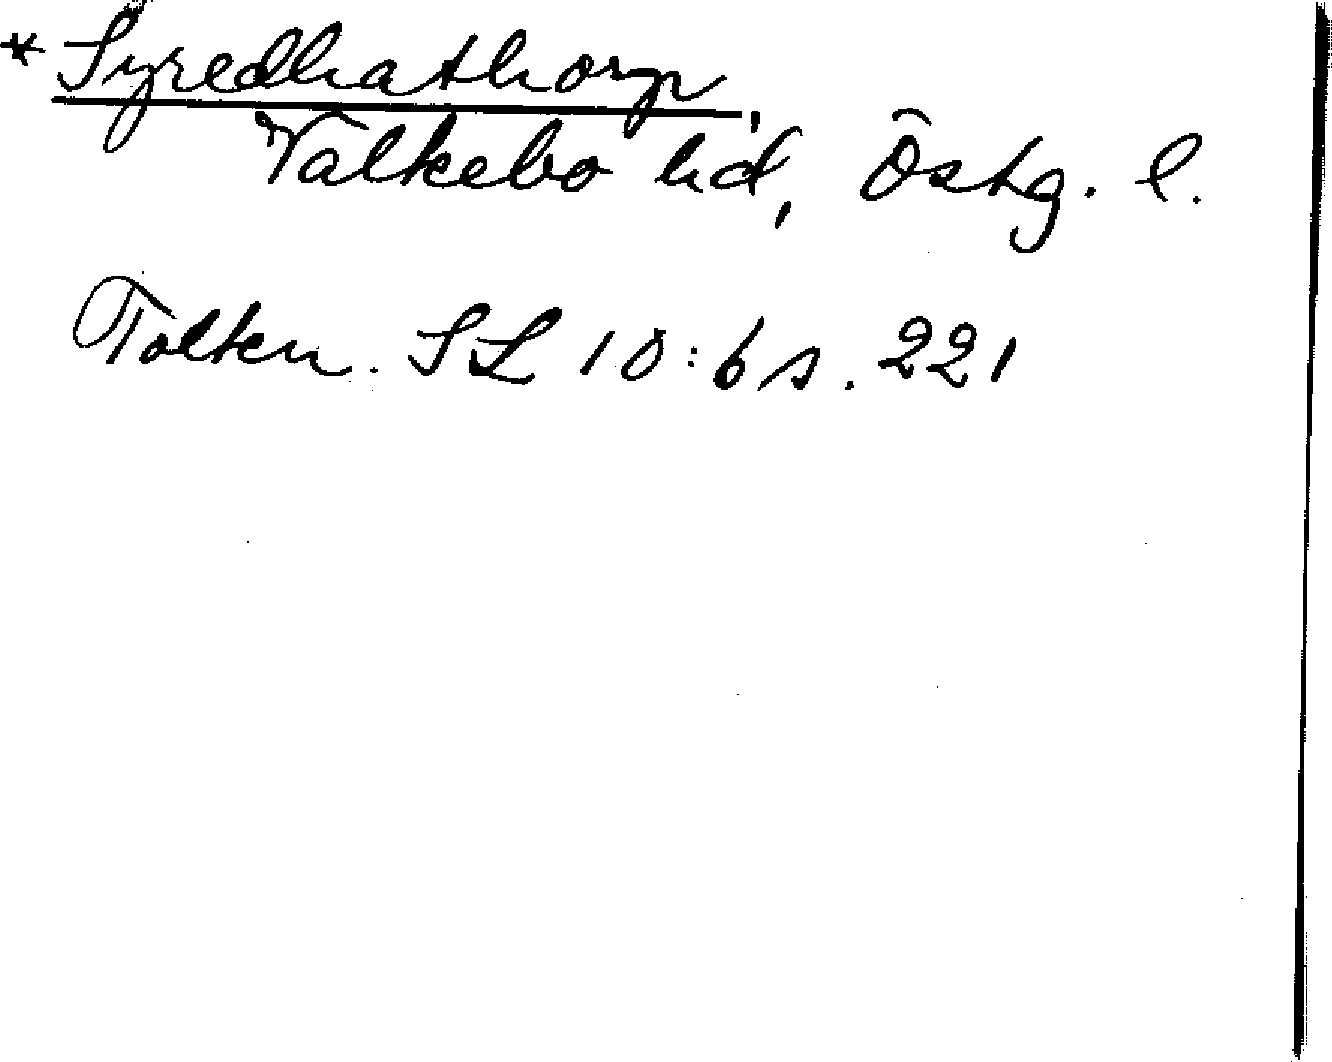 * Syredhathorp,
Valkebo hd, Östg. l.
Tolkn. SL 10:6 s. 221